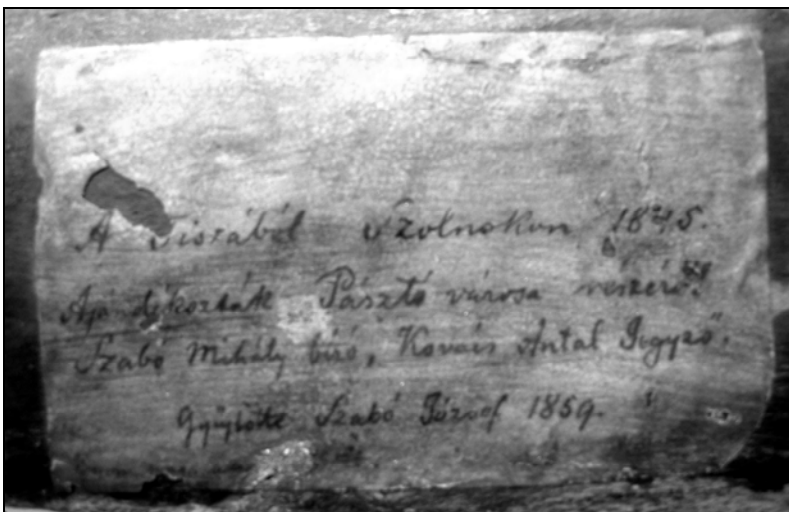 A Tiszából Szolnokon 1845.
Ajándékozták Pásztó városa részéről
Szabó Mihály biró, Kovács Antal Jegyző.
Gyűjtötte Szabó József 1859.